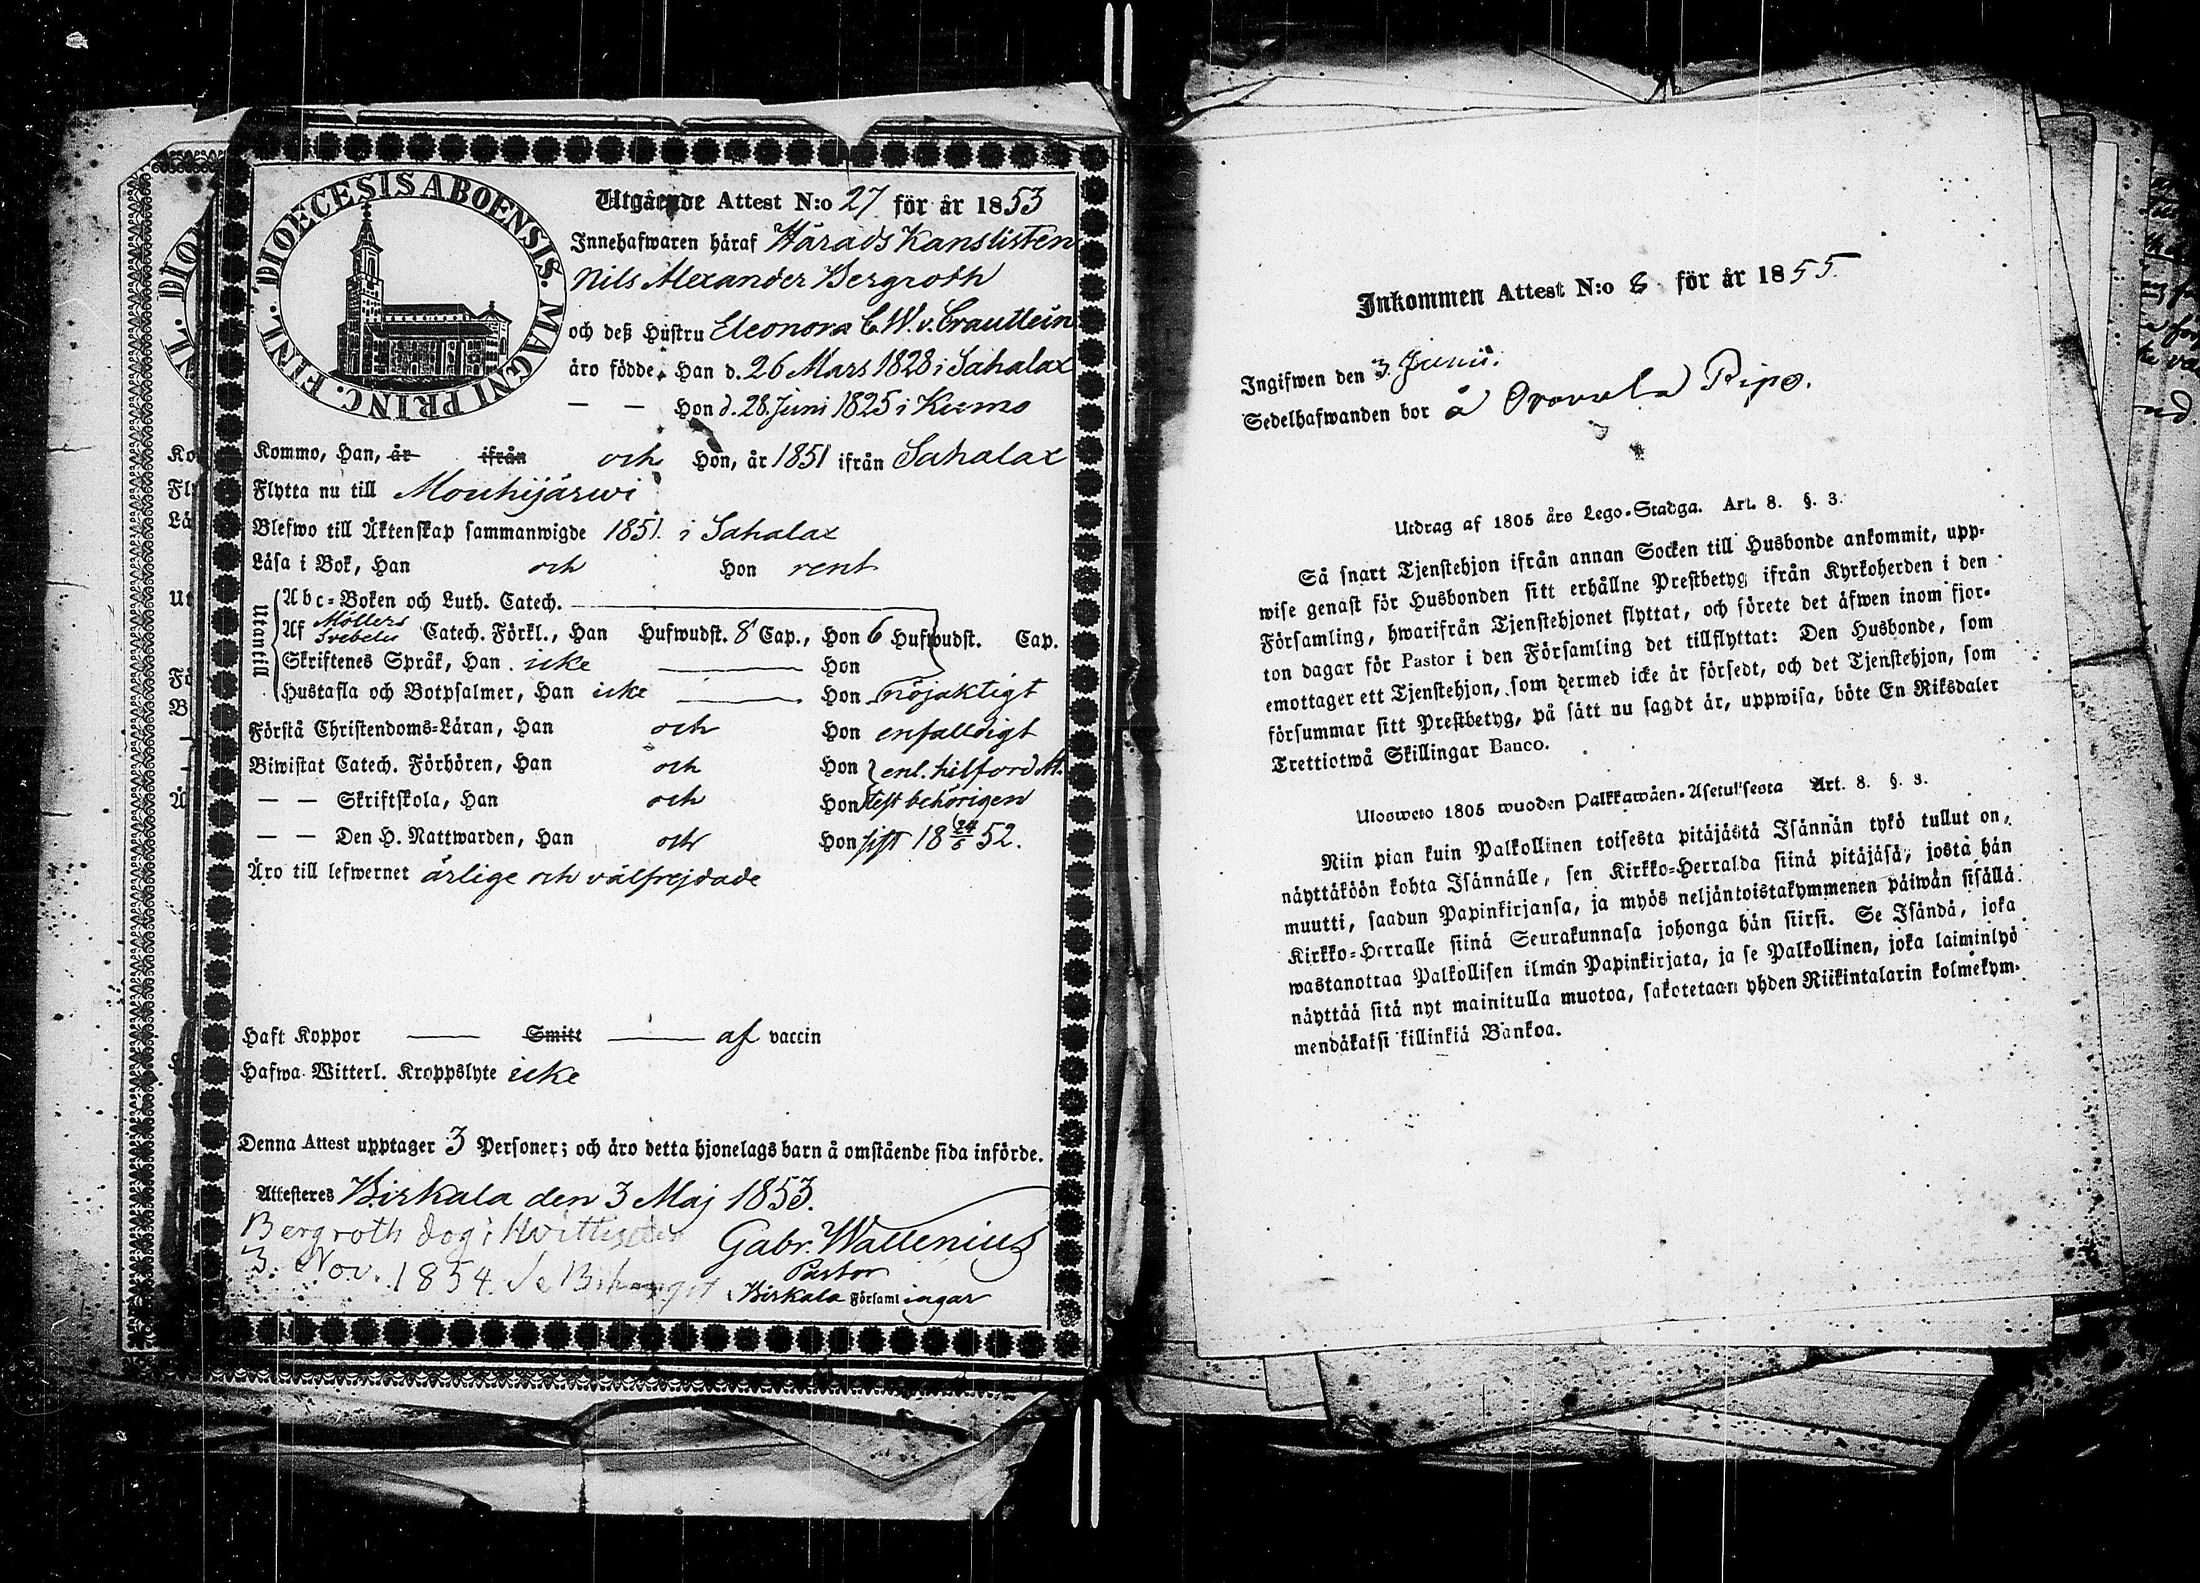 DIOECESIS ABOENSIS. MAGNI PRINC. FINL.
Utgående Attest N:o 27 för år 1853
Innehafwaren häraf Härads Kanslisten
Nils Alexander Bergroth
och deß Hustru Eleonora C. W. v. Crautlein
äro födde, Han d. 26 Mars 1828 i Sahalax
— — Hon d. 28 Juni 1825 i Kumo
Kommo, Han, år ifrån och Hon, år 1851 ifrån Sahalax
Flytta nu till Mouhijärwi
Blefwo till Äktenskap sammanwigde 1851. i Sahalax
Läsa i Bok, Han och Hon rent
Utantill
Abc-Boken och Luth. Catech.
Af Möllers Svebelii Catech. Förkl., Han Hufwudst. 8 Cap., Hon 6 Hufwudst. Cap.
Skriftenes Språk, Han icke — Hon
Hustafla och Botpsalmer, Han icke — Hon nöjaktigt
Förstå Christendoms-Läran, Han och Hon enfaldigt
Biwistat Catech. Förhören, Han och Hon enl.
— — Skriftskola, Han och Hon behörigen
— — Den H. Nattwarden, Han och Hon sist 18 24/5 52.
Äro till lefwernet ärlige och välfrejdade
Haft Koppor — Smitt — af vaccin
Hafwa Witterl. Kroppslyte icke
Denna Attest upptager 3 Personer; och äro detta hjonelags barn å omstående sida införde.
Attesteres Birkala den 3 Maj 1853.
Bergroth dog i Hvittis den
3 Nov. 1854. Se Bihanget
Gabr. Wallenius
Pastor
i Birkala Församlingar
Inkommen Attest N:o 8 för år 1855.
Ingifwen den 3 Junii.
Sedelhafwanden bor å Ripo.
Utdrag af 1805 års Lego-Stadga. Art. 8. §. 3.
Så snart Tjenstehjon ifrån annan Socken till Husbonde ankommit, upp-
wise genast för Husbonden sitt erhållne Prestbetyg ifrån Kyrkoherden i den
Församling, hwarifrån Tjenstehjonet flyttat, och förete det äfwen inom fjor-
ton dagar för Pastor i den Församling det tillflyttat: Den Husbonde, som
emottager ett Tjenstehjon, som dermed icke är försedt, och det Tjenstehjon, som
försummar sitt Prestbetyg, på sätt nu sagdt är, uppwisa, böte En Riksdaler
Trettiotwå Skillingar Banco.
Ulosweto 1805 wuoden Palkkawäen-Asetuksesta Art. 8. §. 3.
Niin pian kuin Palkollinen toisesta pitäjästä Isännän tykö tullut on,
näyttäköön kohta Isännälle, sen Kirkko-Herralda siinä pitäjäsä, jostä hän
muutti, saadun Papinkirjansa, ja myös neljäntoistakymmenen päiwän sisällä
Kirkko-Herralle siinä Seurakunnasa johonga hän siirsi. Se Isändä, joka
wastanottaa Palkollisen ilman Papinkirjata, ja se Palkollinen, joka laiminlyö
näyttää sitä nyt mainitulla muotoa, sakotetaan yhden Riikintalarin kolmekym-
mendäkaksi killinkiä Bankoa.